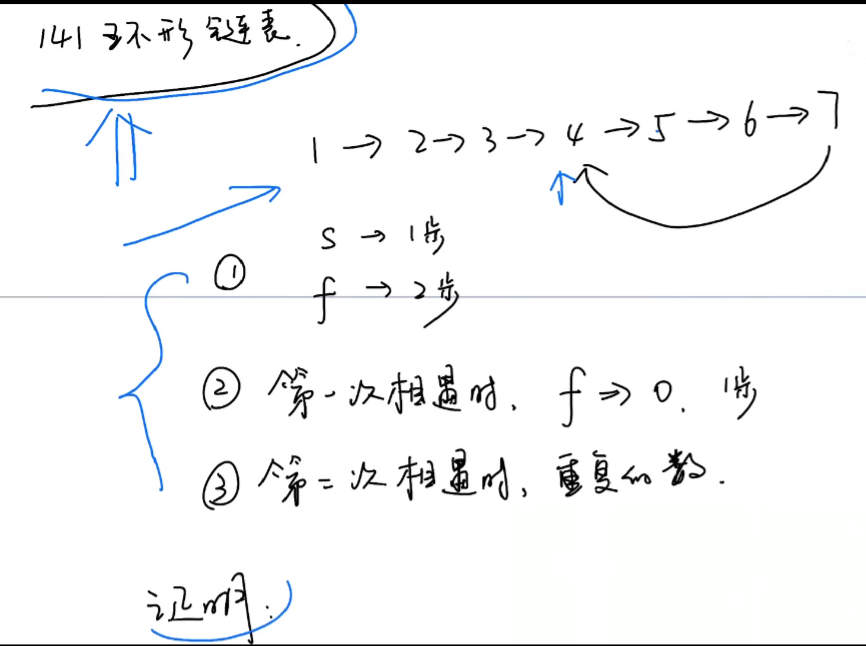 141 环形链表.
1 → 2 → 3 → 4 → 5 → 6 → 7
① s → 1步
f → 2步
② 第一次相遇时, f ⇒ 0. 1步
③ 第二次相遇时, 重复的数.
证明: